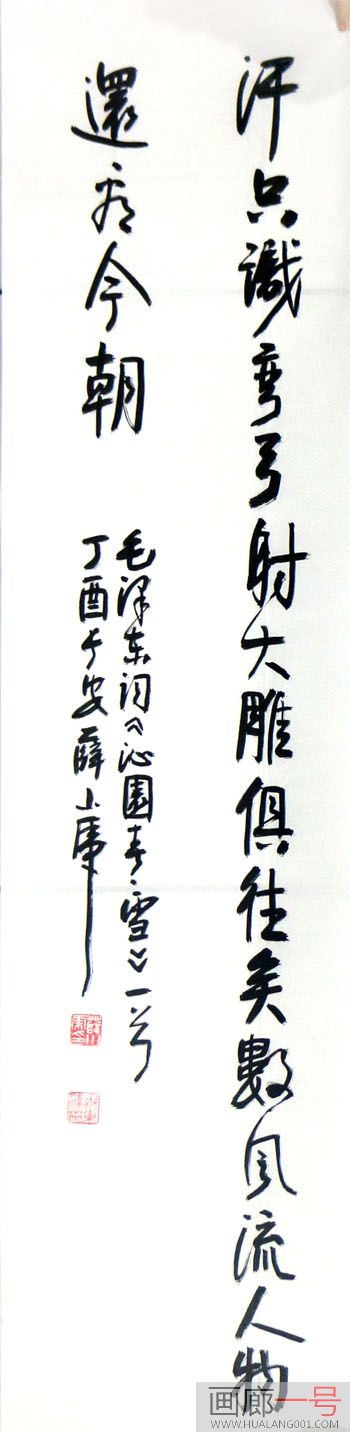 汗只識弯弓射大雕俱往矣數风流人物
還看今朝
毛泽东词《沁園春·雪》一首
丁酉于安薛小虎
画廊一号
WWW.HUALANG001.COM